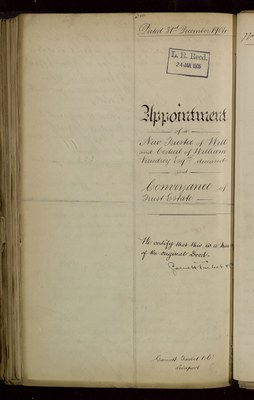 Dated 31st December 1904
L. R. Reed.
24 JAN 1905
Appointment
of a
New Trustee of Will
and Codicil of William
Esqre deceased
and
Conveyance of
Trust Estate
We certify that this is a true
of the original Deed.
Liverpool